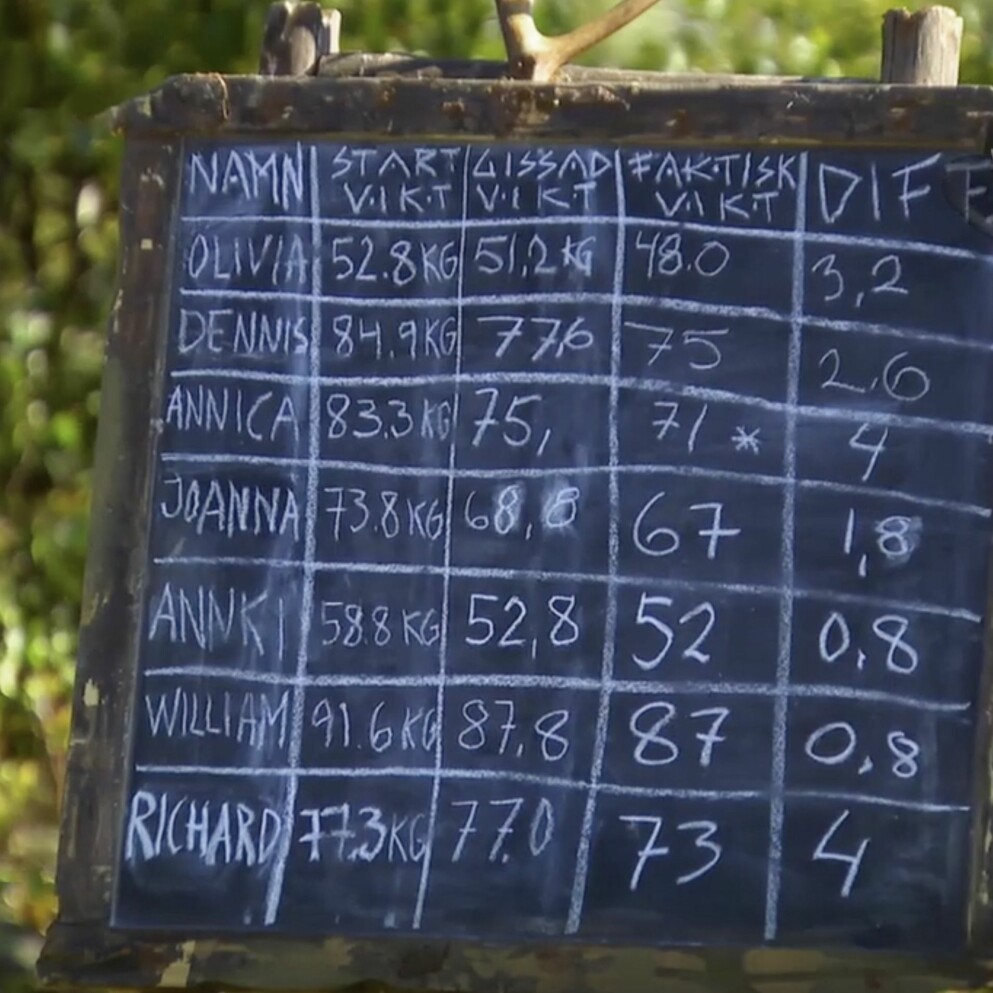 NAMN START VIKT GISSAD VIKT FAKTISK VIKT DIFF
OLIVIA 52.8KG 51,2KG 48.0 3,2
DENNIS 84.9KG 77,6 75 2.6
ANNICA 83.3KG 75, 71 * 4
JOANNA 73.8KG 68,8 67 1,8
ANNKI 58.8KG 52,8 52 0,8
WILLIAM 91.6KG 87,8 87 0,8
RICHARD 77.3KG 77.0 73 4